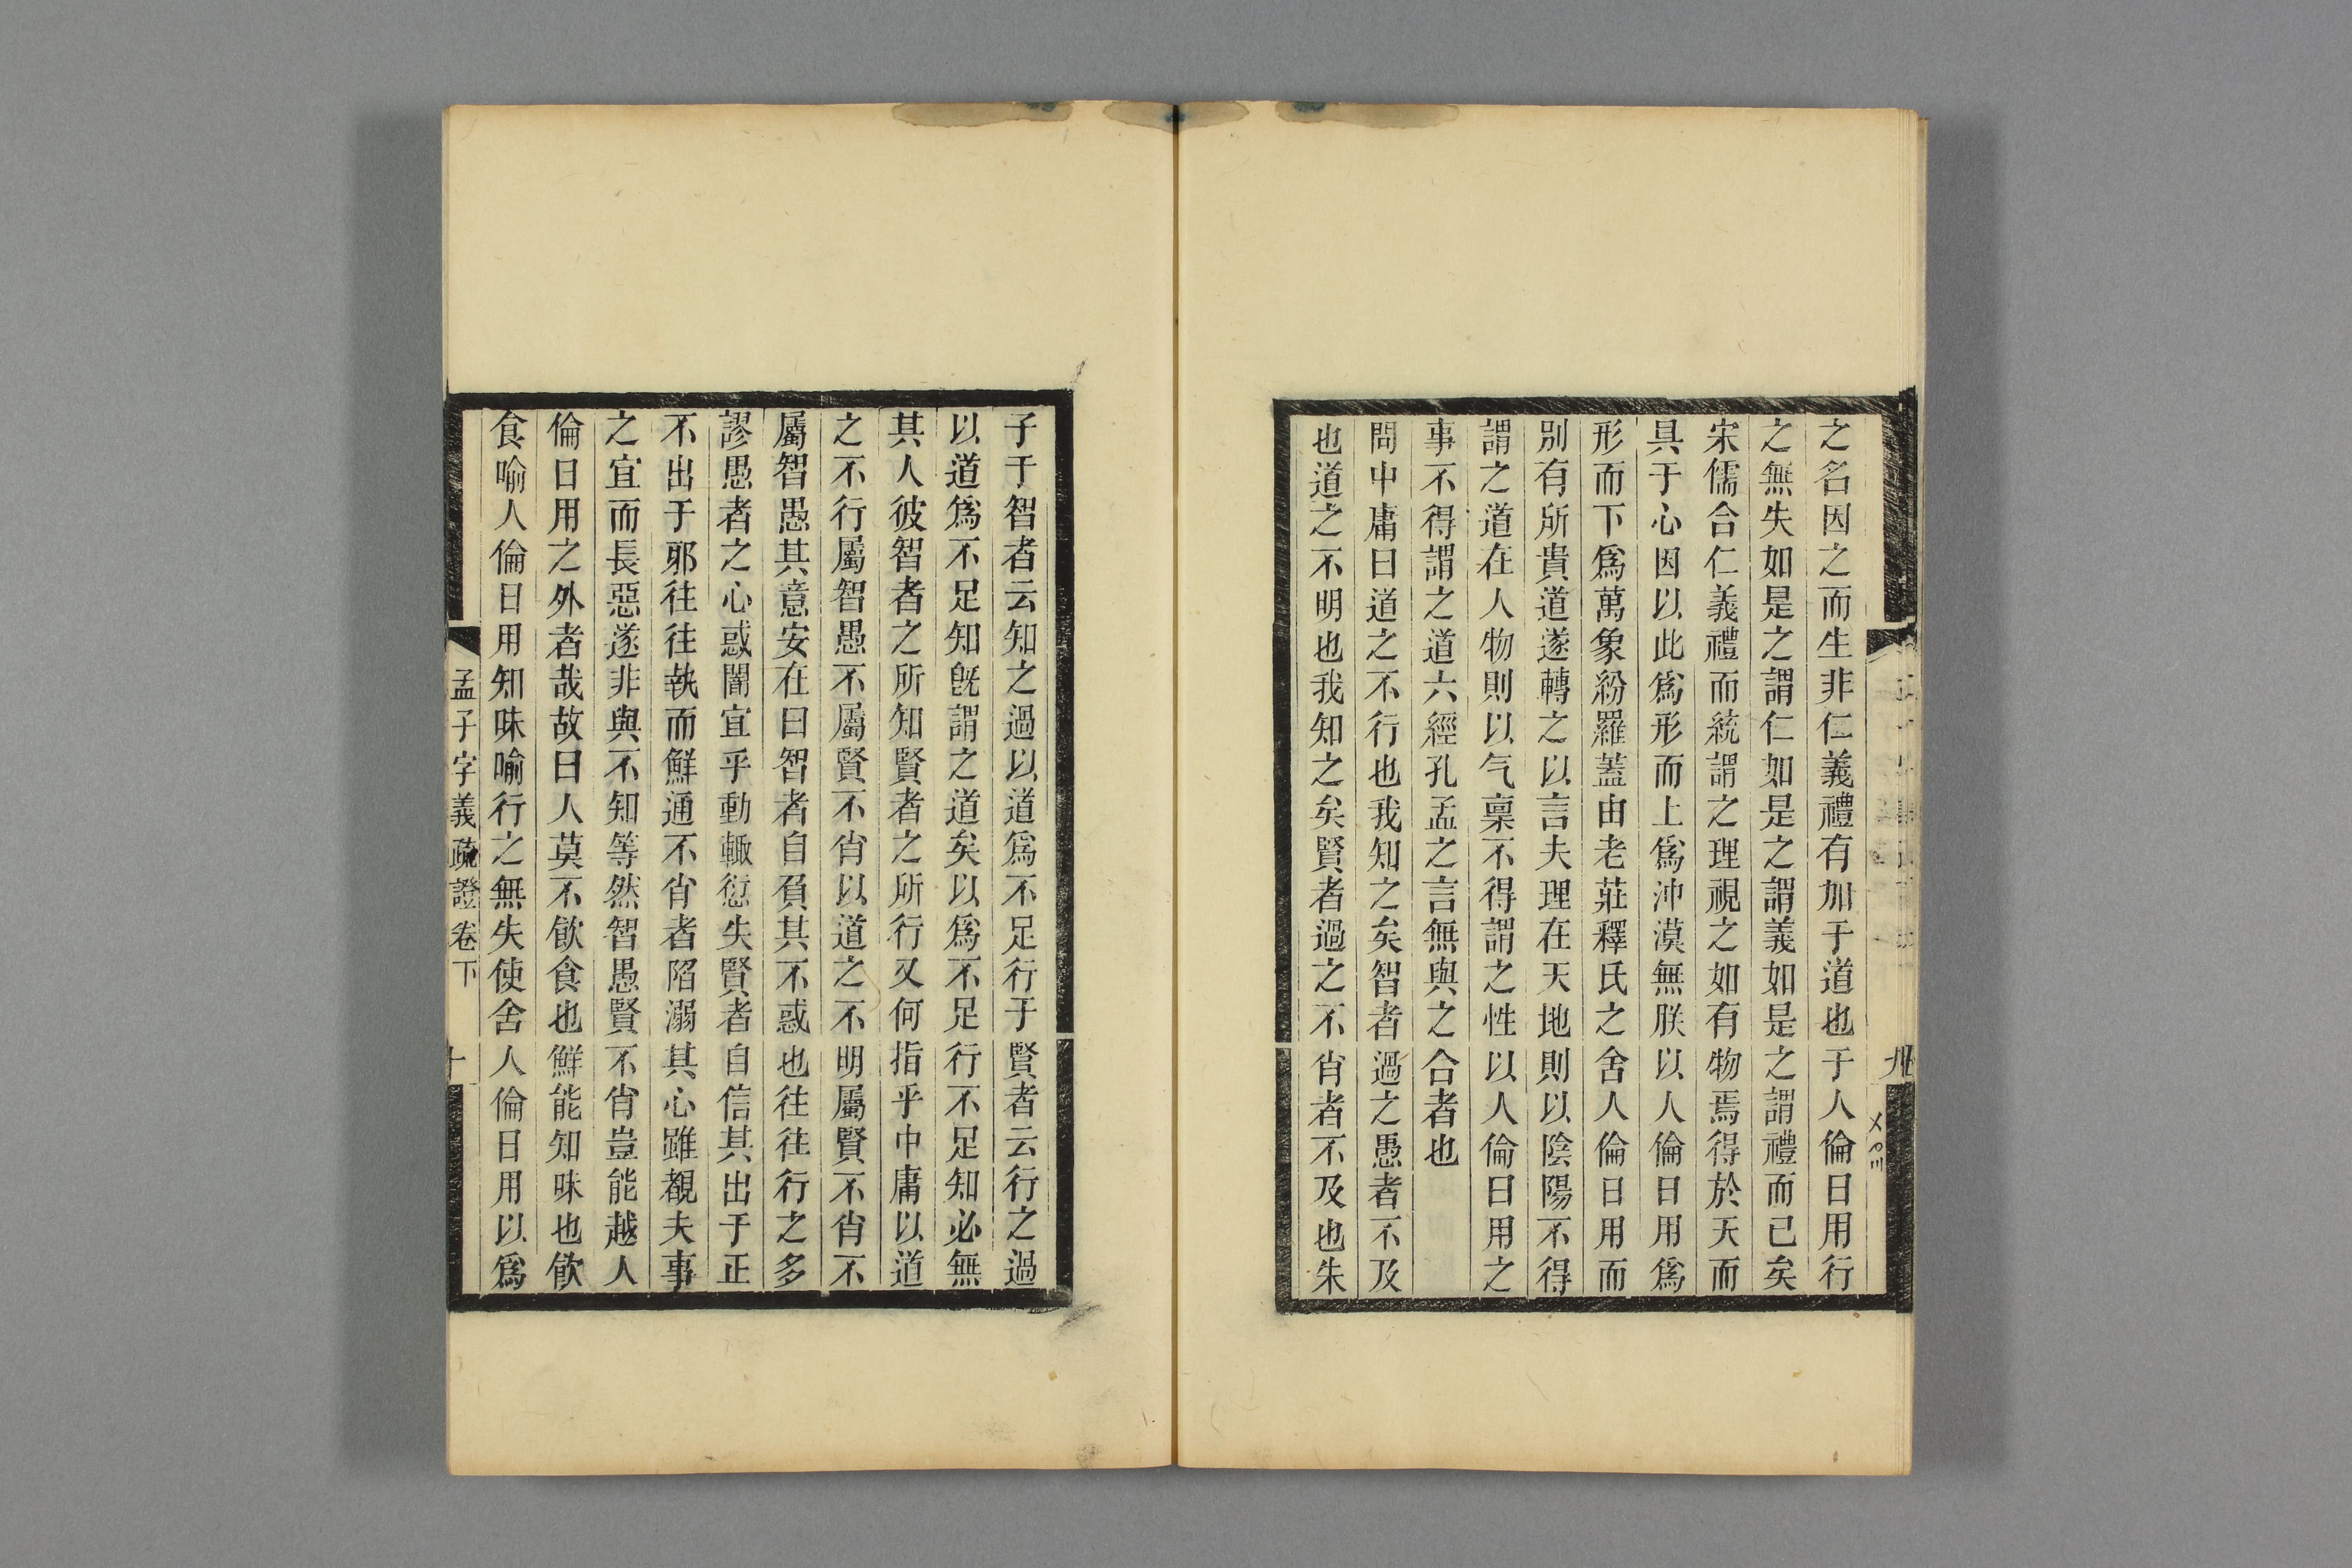 之名因之而生非仁義禮有加于道也于人倫日用行
之無失如是之謂仁如是之謂義如是之謂禮而已矣
宋儒合仁義禮而統謂之理視之如有物焉得於天而
具于心因以此爲形而上爲沖漠無朕以人倫日用爲
形而下爲萬象紛羅蓋由老莊釋氏之舍人倫日用而
別有所貴道遂轉之以言夫理在天地則以陰陽不得
謂之道在人物則以气稟不得謂之性以人倫日用之
事不得謂之道六經孔孟之言無與之合者也
問中庸曰道之不行也我知之矣智者過之愚者不及
也道之不明也我知之矣賢者過之不肖者不及也朱
子于智者云知之過以道爲不足行于賢者云行之過
以道爲不足知旣謂之道矣以爲不足行不足知必無
其人彼智者之所知賢者之所行又何指乎中庸以道
之不行屬智愚不屬賢不肖以道之不明屬賢不肖不
屬智愚其意安在曰智者自負其不惑也往往行之多
謬愚者之心惑闇宜乎動輒愆失賢者自信其出于正
不出于邪往往執而鮮通不肖者陷溺其心雖覩夫事
之宜而長惡遂非與不知等然智愚賢不肖豈能越人
倫日用之外者哉故曰人莫不飮食也鮮能知味也飮
食喻人倫日用知味喻行之無失使舍人倫日用以爲
孟子字義疏證卷下
十